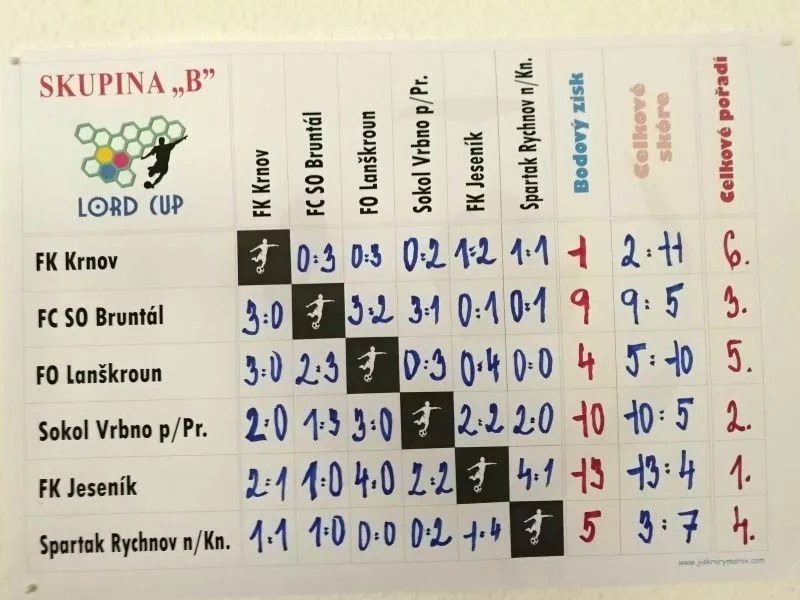 SKUPINA „B”
LORD CUP
FK Krnov
FC SO Bruntál
FO Lanškroun
Sokol Vrbno p/Pr.
FK Jeseník
Spartak Rychnov n/Kn.
Bodový zisk
Celkové
skóre
Celkové pořadí
FK Krnov 0:3 0:3 0:2 1:2 1:1 1 2:11 6.
FC SO Bruntál 3:0 3:2 3:1 0:1 0:1 9 9:5 3.
FO Lanškroun 3:0 2:3 0:3 0:4 0:0 4 5:10 5.
Sokol Vrbno p/Pr. 2:0 1:3 3:0 2:2 2:0 10 10:5 2.
FK Jeseník 2:1 1:0 4:0 2:2 4:1 13 13:4 1.
Spartak Rychnov n/Kn. 1:1 1:0 0:0 0:2 1:4 5 3:7 4.
www.jiskrarymarov.com